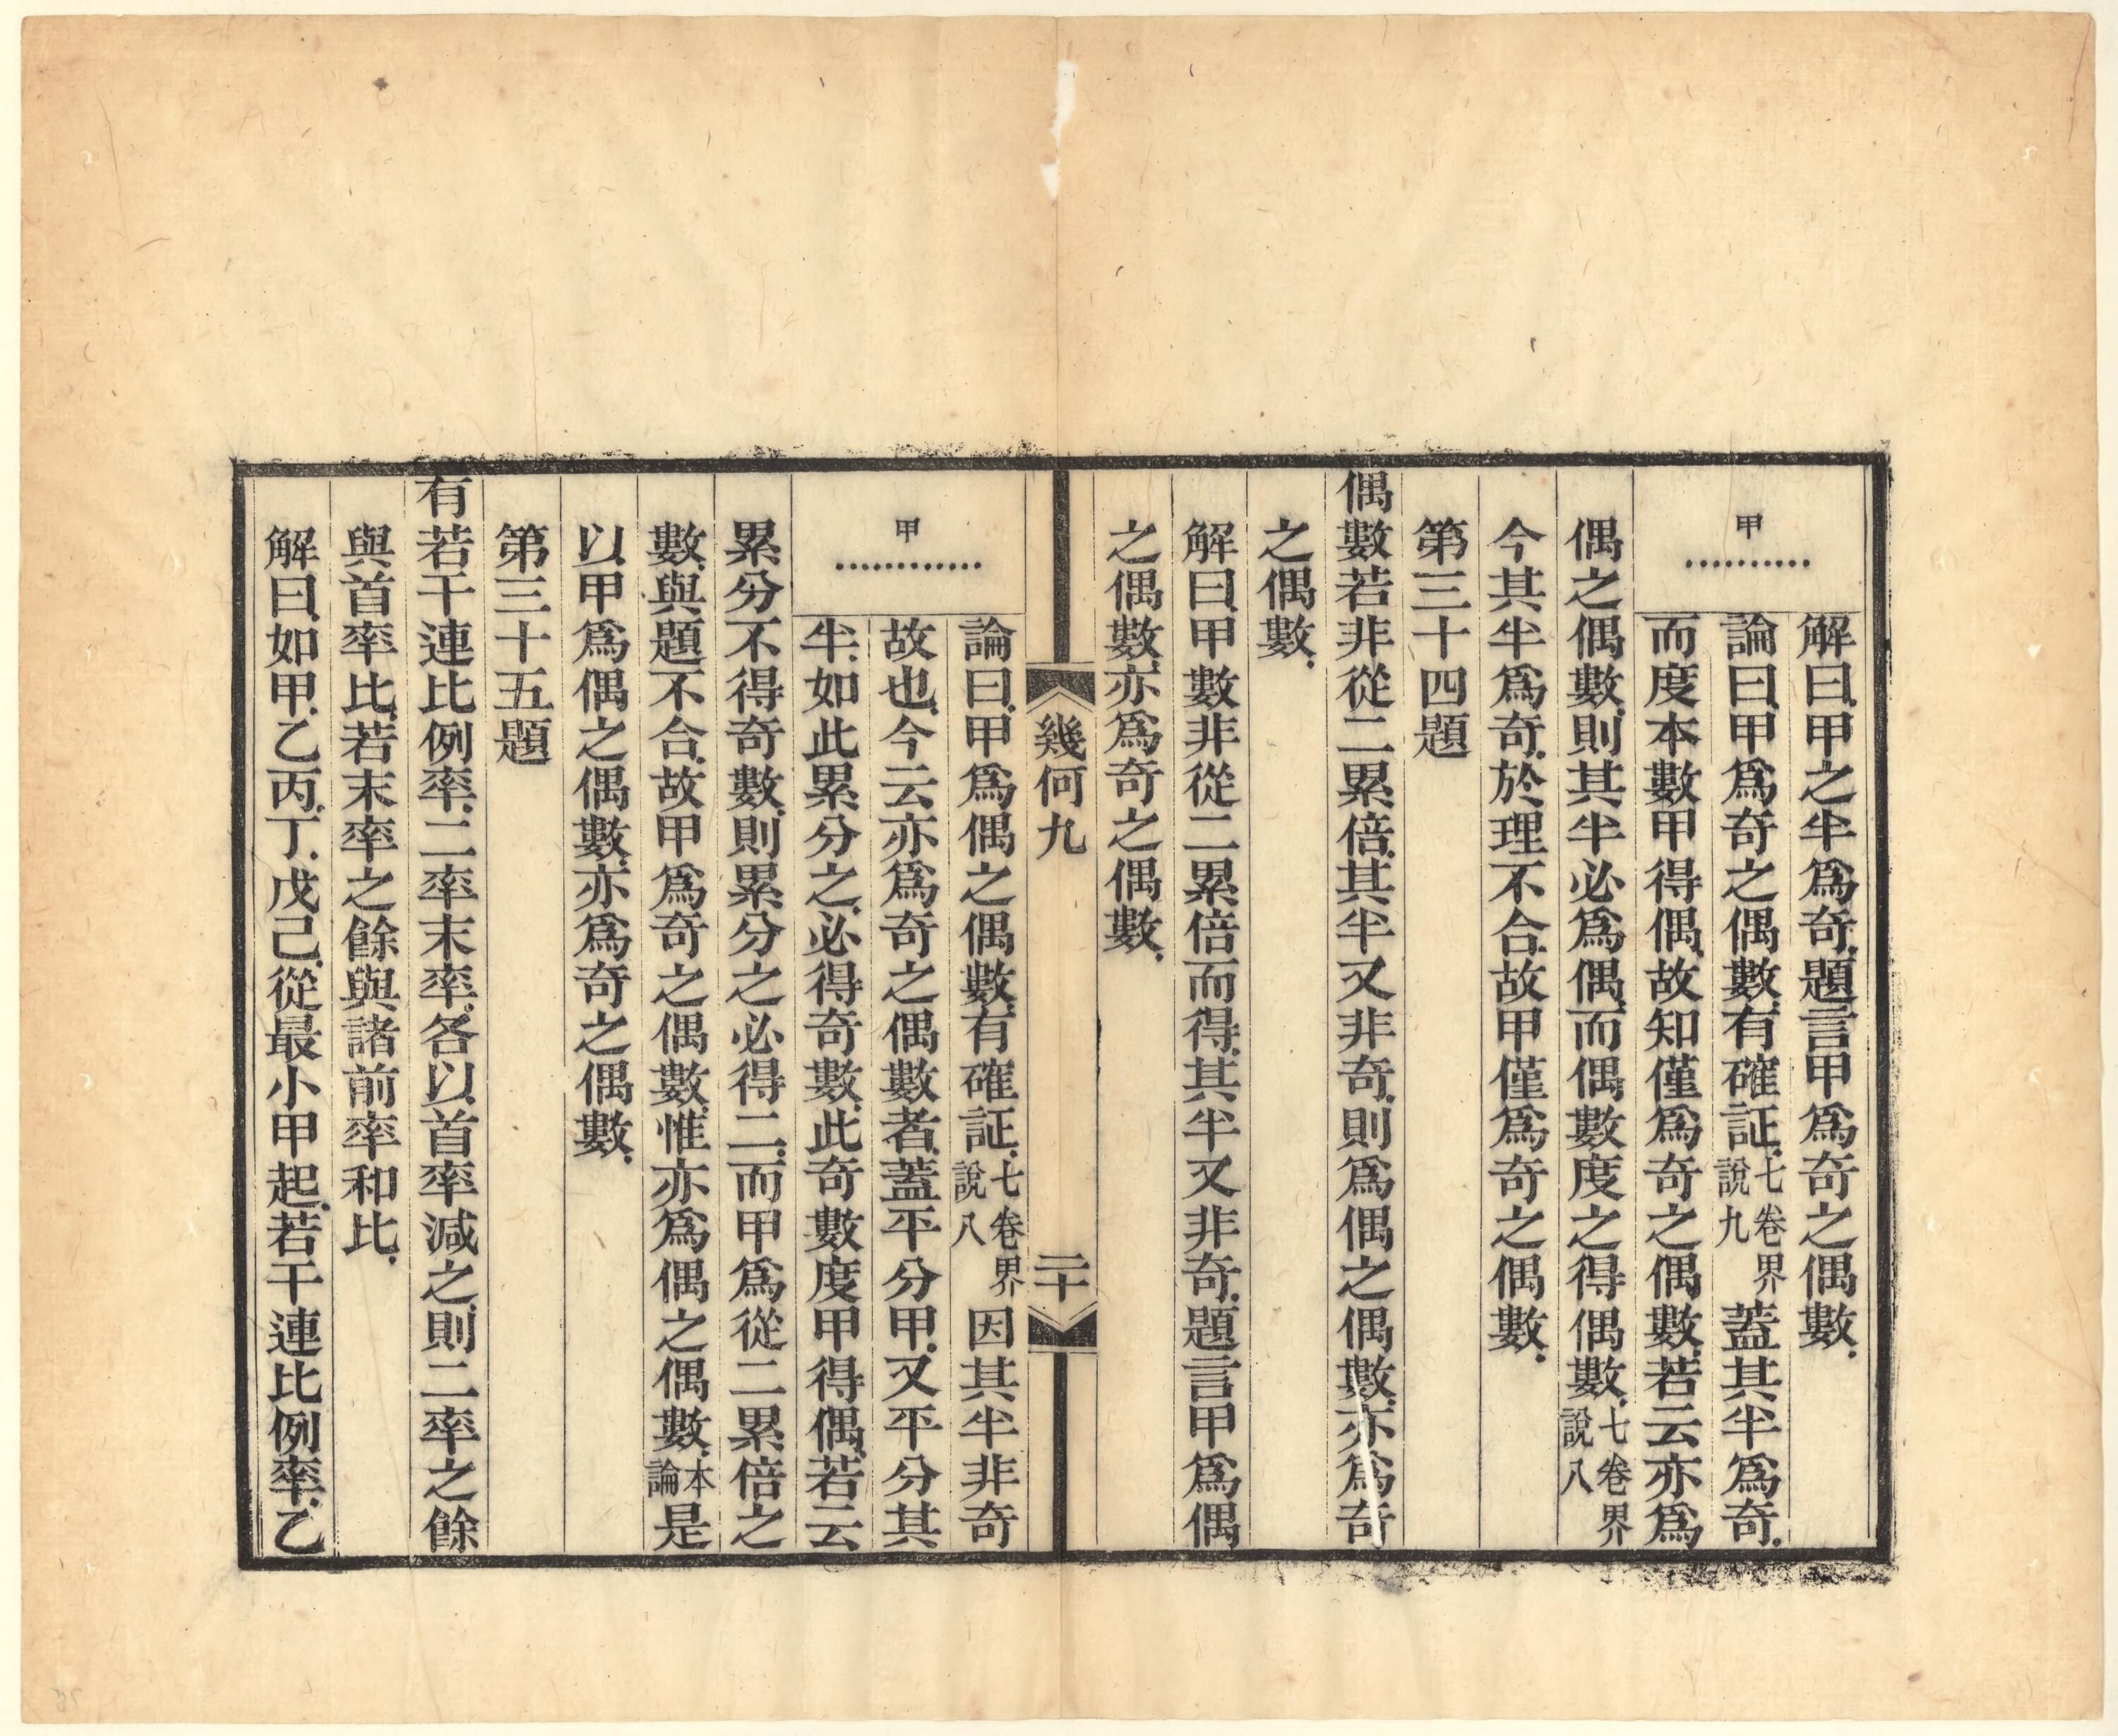 甲
解曰甲之半爲奇題言甲爲奇之偶數
論曰甲爲奇之偶數有確証七卷界說九蓋其半爲奇
而度本數甲得偶故知僅爲奇之偶數若云亦爲
偶之偶數則其半必爲偶而偶數度之得偶數七卷界說八
今其半爲奇於理不合故甲僅爲奇之偶數
第三十四題
偶數若非從二累倍其半又非奇則爲偶之偶數亦爲奇
之偶數
解曰甲數非從二累倍而得其半又非奇題言甲爲偶
之偶數亦爲奇之偶數
幾何九
二十
甲
論曰甲爲偶之偶數有確証七卷界說八因其半非奇
故也今云亦爲奇之偶數者蓋平分甲又平分其
半如此累分之必得奇數此奇數度甲得偶若云
累分不得奇數則累分之必得二而甲爲從二累倍之
數與題不合故甲爲奇之偶數惟亦爲偶之偶數本論是
以甲爲偶之偶數亦爲奇之偶數
第三十五題
有若干連比例率二率末率各以首率減之則二率之餘
與首率比若末率之餘與諸前率和比
解曰如甲乙丙丁戊己從最小甲起若干連比例率乙